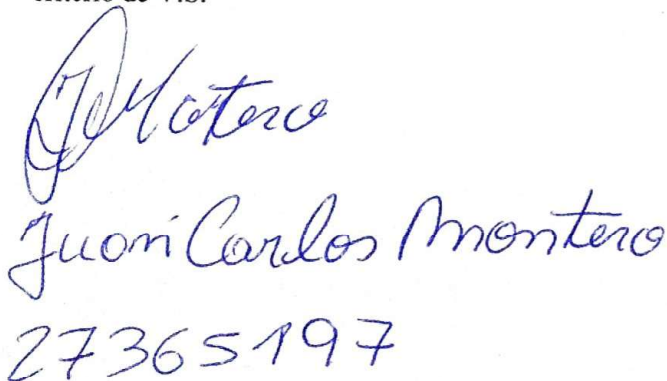 de V.S.
JCMontero
Juan Carlos Montero
27365197